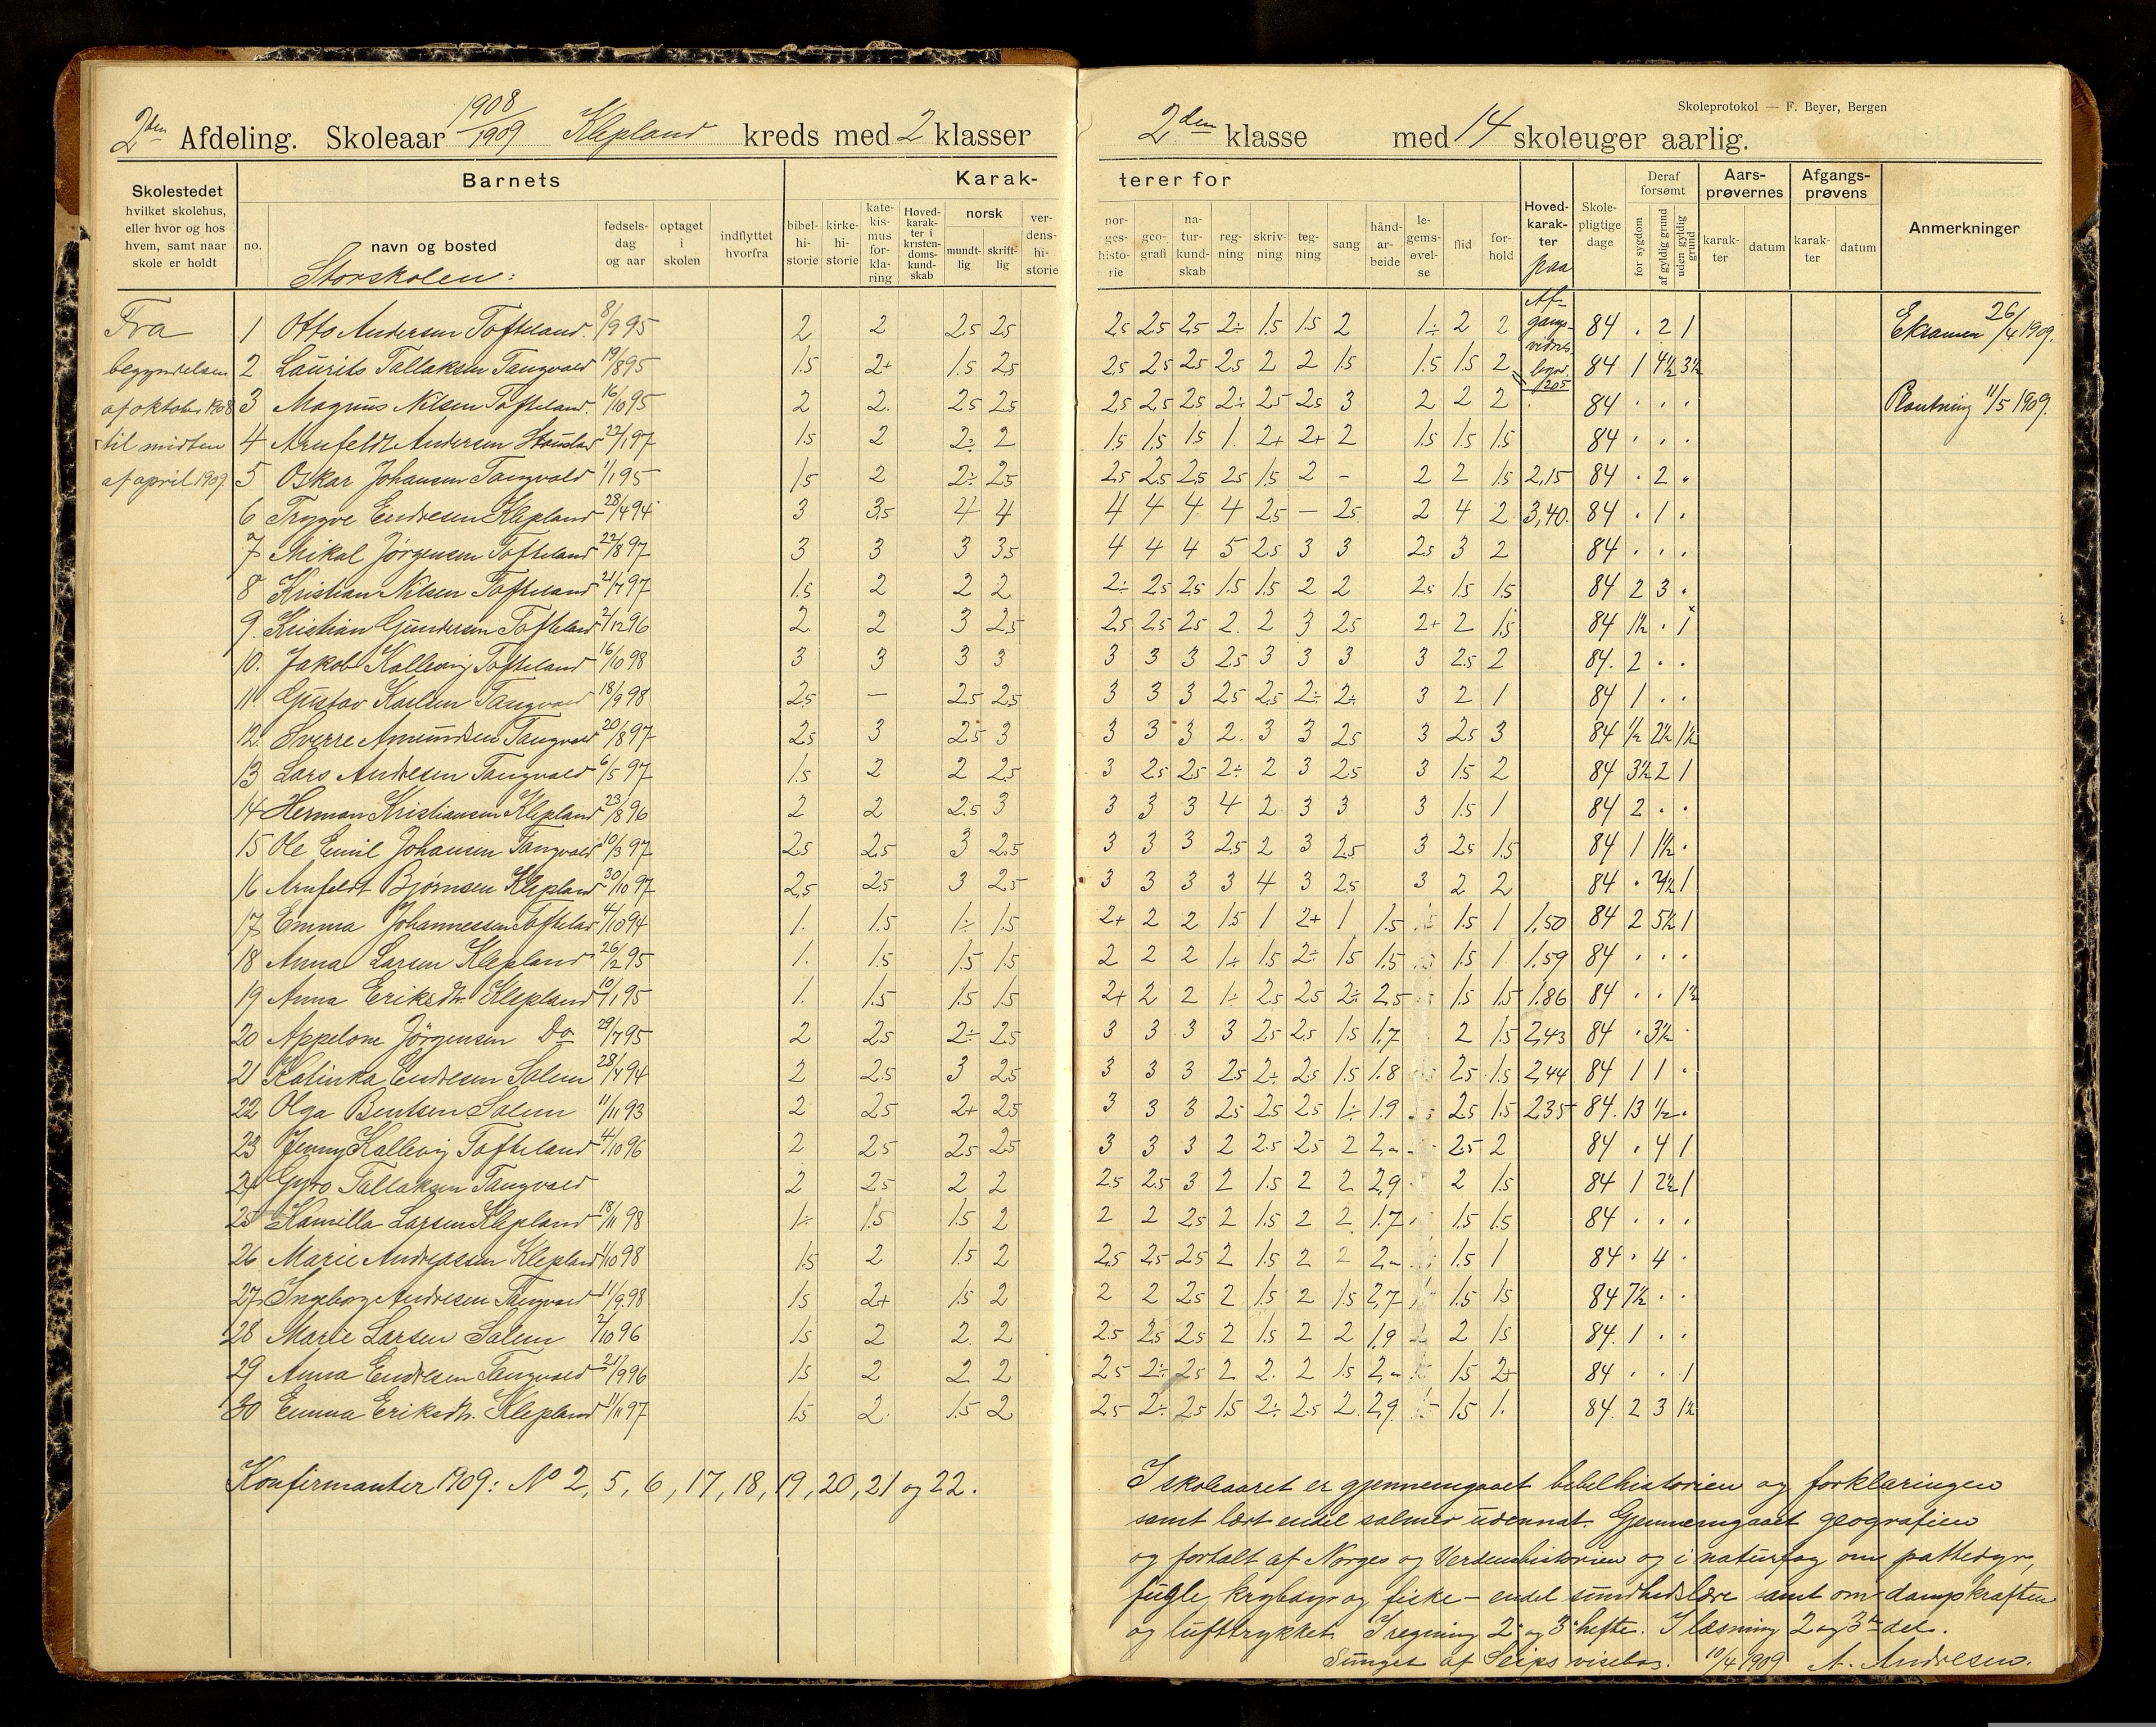 Skoleprotokol — F. Beyer, Bergen
2den Afdeling. Skoleaar 1908/1909 Klepland kreds med 2 klasser
2den klasse med 14 skoleuger aarlig.
Skolestedet hvilket skolehus, eller hvor og hos hvem, samt naar skole er holdt
Barnets
no. navn og bosted fødselsdag og aar optaget i skolen indflyttet hvorfra
Storskolen:
Karakterer for
bibelhistorie kirkehistorie katekismusforklaring Hovedkarakter i kristendomskundskab norsk mundtlig skriftlig verdenshistorie
norgeshistorie geografi naturkundskab regning skrivning tegning sang håndarbeide legemsøvelse flid forhold
Hovedkarakter paa Afgangsvidnesbyrd
Skolepligtige dage
Deraf forsømt for sygdom af gyldig grund uden gyldig grund
Aarsprøvernes karakter datum
Afgangsprøvens karakter datum
Anmerkninger
Fra
begyndelsen
af oktober 1908
til midten
af april 1909.
1 Otto Andersen Tofteland. 8/9 95 2 2 2.5 2.5 2.5 2.5 2.5 2÷ 1.5 1.5 2 1÷ 2 2 84 . 2 1 Eksamen 26/4 1909.
2 Laurits Tallaksen Tangvald 19/8 95 1.5 2+ 1.5 2.5 2.5 2.5 2.5 2.5 2 2 1.5 1.5 1.5 2 2.05 84 1 4½ 3½
3 Magnus Nilsen Tofteland. 16/10 95 2 2. 2.5 2.5 2.5 2.5 2.5 2÷ 2.5 2.5 3 2 2 2 84 . . . 11/5 1909.
4 Arnfeldt Andersen 22/1 97 1.5 2 2÷ 2 1.5 1.5 1.5 1. 2+ 2+ 2 1.5 1.5 1.5 84 . . .
5 Oskar Johansen Tangvald 1/1 95 1.5 2 2÷ 2.5 2.5 2.5 2.5 2.5 1.5 2 - 2 2 1.5 2,15 84 . 2 .
6 Trygve Endresen Klepland 28/4 94 3 3.5 4 4 4 4 4 4 2.5 - 2.5 2 4 2 3,40. 84 . 1 .
7 Mikal Jörgensen Tofteland 22/8 97 3 3 3 3.5 4 4 4 5 2.5 3 3 2.5 3 2 84 . . .
8 Kristian Nilsen Tofteland 21/7 97 1.5 2 2 2 2÷ 2.5 2.5 1.5 1.5 2 2 2.5 1.5 1.5 84 2 3 .
9. Kristian Gundersen Tofteland 2/12 96 2. 2 3 2.5 2.5 2.5 2.5 2. 2 3 2.5 2+ 2 1.5 84 1½ . 1
10. Jakob Kallevig Tofteland 16/10 98 3 3 3 3 3 3 3 2.5 3 3 3 3 2.5 2 84. 2 . .
11 Gustav Karlsen Tangvald 18/9 98 2.5 - 2.5 2.5 3 3 3 2.5 2.5 2÷ 2÷ 3 2 1 84 1 . .
12. Sverre Amundsen Tangvald 20/8 97 2.5 3 2.5 3 3 3 3 2. 3 3 2.5 3 2.5 3 84 ½ 2½ 1½
13 Lars Andresen Tangvald 6/5 97 1.5 2 2 2.5 3 2.5 2.5 2÷ 2 3 2.5 3 1.5 2 84 3½ 2 1
14 Herman Kristiansen Klepland 23/8 96 2 2 2.5 3 3 3 3 4 2 3 3 3 1.5 1 84 2 . .
15 Ole Emil Johansen Tangvald 10/3 97 2.5 2.5 3 2.5 3 3 3 2.5 2 3 2.5 3 2.5 1.5 84 1 1½ .
16 Arnfeldt Bjørnsen Klepland 30/10 97 2.5 2.5 3 2.5 3 3 3 3 4 3 2.5 3 2 2 84 . 1
17 Emma Johannessen Tofteland 4/10 94 1. 1.5 1÷ 1.5 2+ 2 2 1.5 1 2+ 1 1.5 1.5 1 1.50 84 2 5½ 1
18 Anna Larsen Klepland 26/2 95 1. 1.5 1.5 1.5 2 2 2 1÷ 1.5 2÷ 1.5 1.5 1.5 1 1.59 84 . . .
19 Anna Eriksdtr. Klepland 10/1 95 1. 1.5 1.5 1.5 2+ 2 2 1÷ 2.5 2.5 2÷ 2.5 1.5 1.5 1.86 84 . . 1½
20 Appelone Jörgensen Do 29/7 95 2 2.5 2÷ 2.5 3 3 3 3 2.5 2.5 1.5 1.7 2 1.5 2,43 84 . 3½ .
21 Katinka Endresen Salem 28/4 94 2 2.5 3 2.5 3 3 3 2.5 2÷ 2.5 1.5 1.8 2.5 1.5 2,44 84 1 1 .
22 Olga Bentsen Salem 11/11 93 2 2.5 2+ 2.5 3 3 3 2.5 2.5 2.5 1÷ 1.9 2.5 1.5 2.35 84. 13 ½ .
23 Jenny Kallevig Tofteland 4/10 96 2 2.5 2.5 2.5 3 3 3 2 2.5 2.5 2 2,- 2.5 2 84 . 4 1
24 Gyro Tallaksen Tangvald 2 2.5 2 2 2.5 2.5 3 2 1.5 2 2 2,9 2 1.5 84 1 2½ 1
25 Kamilla Larsen Klepland 18/11 98 1÷ 1.5 1.5 2 2 2 2.5 2 1.5 2 2 1.7 1.5 1.5 84 . . .
26 Marie Andreassen Klepland 1/10 98 1.5 2 1.5 2 2.5 2.5 2.5 2 1.5 2 2 2,- 1.5 1 84 . 4 .
27 Ingeborg Andresen Tangvald 11/9 98 1.5 2+ 1.5 2 2 2 2.5 2 1.5 2 1.5 2,7 1.5 1.5 84 7½ . .
28 Marie Larsen Salem 2/10 96 1.5 2 2. 2 2.5 2.5 2.5 2 1.5 2 2 1,9 2 1.5 84. 1 . .
29 Anna Endresen Tangvald 21/9 96 1.5 2 2 2 2.5 2÷ 2.5 2 2. 2 1.5 2,- 1.5 2+ 84 . . 1
30 Emma Eriksdtr. Klepland 11/11 97 1.5 2. 1.5 2 2.5 2÷ 2.5 1.5 2÷ 2.5 2 2,9 1.5 1. 84. 2 3 1½
Konfirmanter 1909: No 2, 5, 6, 17, 18, 19, 20, 21 og 22.
I skoleaaret er gjennemgaaet bibelhistorien og forklaringen
samt lært endel salmer udennat. Gjennemgaaet geografien
og fortalt af Norges og Verdenshistorien og i naturfag om pattedyr,
fugle, krybdyr og fiske - endel sundhedslære samt om dampkraften
og lufttrykket. I regning 2. og 3. hefte. I læsning 2 og 3die del.
Sunget af Seips visebog. 10/4 1909 A. Andresen.